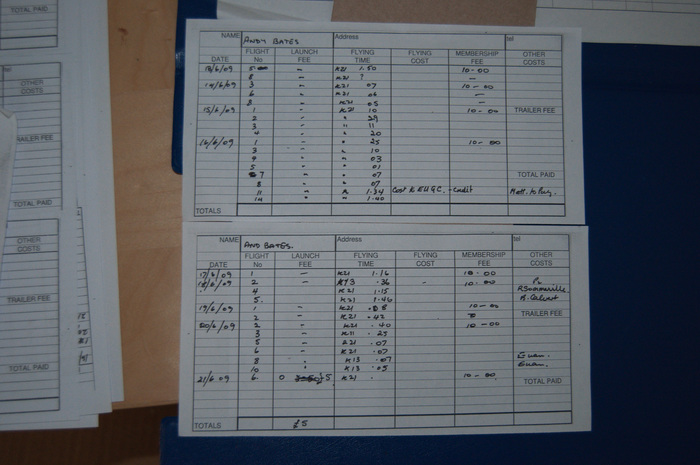 TOTAL PAID
tel
OTHER COSTS
TRAILER FEE
TOTAL PAID
OTHER COSTS
TRAILER FEE
TOTAL PAID
NAME ANDY BATES Address tel
DATE FLIGHT No LAUNCH FEE FLYING TIME FLYING COST MEMBERSHIP FEE OTHER COSTS
13/6/09 5 - K21 1.50 10-00
8 - K21 ? -
14/6/09 3 - K21 07 10-00
6 - K21 06 -
8 - K21 05 -
15/6/09 1 - K21 10 10-00 TRAILER FEE
2 - " 29
3 - " 11
4 - " 20
16/6/09 1 - " 25 10-00
3 - " 10
4 - " 03
5 - " 01
7 - " 07 TOTAL PAID
8 " " 07
11 " " 1.34 Cost to EUGC. - credit
14 " " 1.40
TOTALS
NAME AND BATES. Address tel
DATE FLIGHT No LAUNCH FEE FLYING TIME FLYING COST MEMBERSHIP FEE OTHER COSTS
17/6/09 1 - K21 1.16 10-00
18/6/09 2 - K13 .36 - 10-00
4 K21 1.15
5. K21 1.46
19/6/09 1 - K21 10-00
2 - K21 .42 TRAILER FEE
20/6/09 2 - K21 .40 10-00
3 - K21 .25
5 - K21 .07
6 - K21 .07
8 K13 .07
10 K13 .05
21/6/09 6 0 K21 . 10-00 TOTAL PAID
TOTALS £5